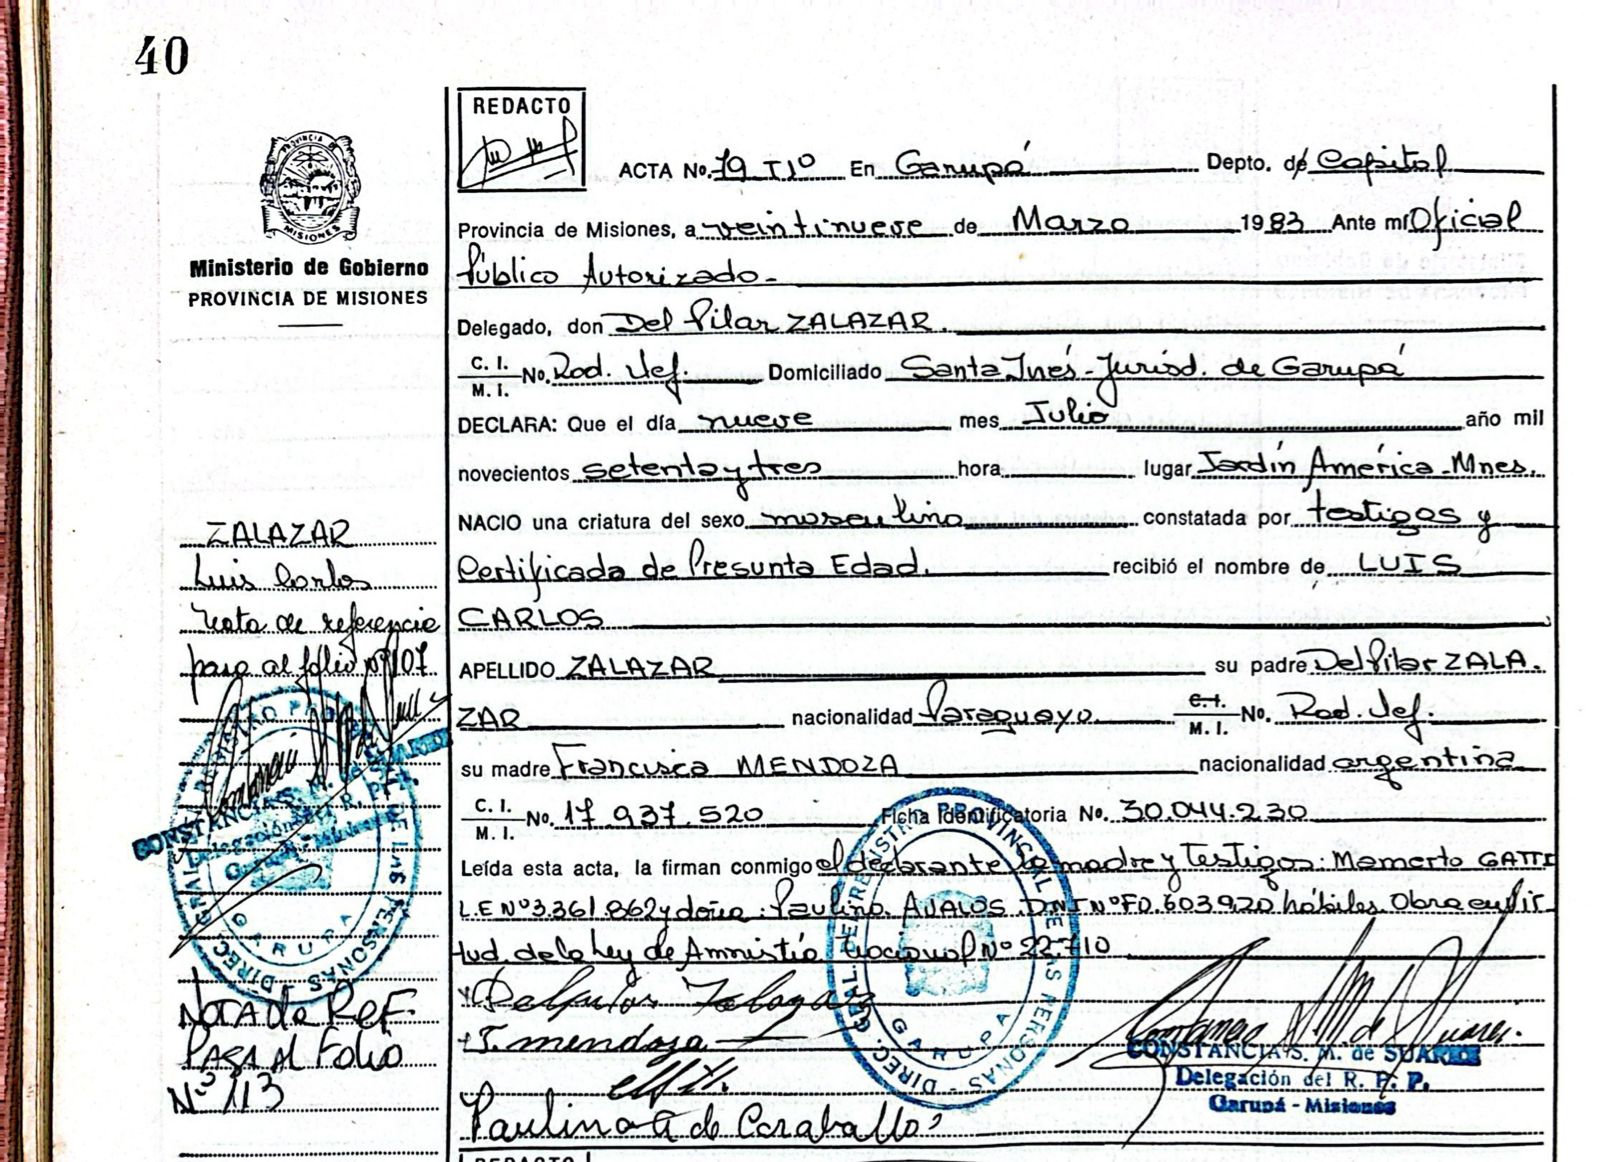 40
REDACTO
PROVINCIA DE
MISIONES
Ministerio de Gobierno
PROVINCIA DE MISIONES
ACTA No. 79 TIº En Garupá Depto. de Capital
Provincia de Misiones, a veintinueve de Marzo 1983 Ante mí Oficial
Público Autorizado-
Delegado, don Del Pilar ZALAZAR.
C. I.
M. I. No. Rad. Jef. Domiciliado Santa Inés-Jurisd. de Garupá
DECLARA: Que el día nueve mes Julio año mil
novecientos setenta y tres hora lugar Jardín América-Mnes.
NACIO una criatura del sexo masculino constatada por testigos y
Certificado de Presunta Edad. recibió el nombre de LUIS
CARLOS
APELLIDO ZALAZAR su padre Del Pilar ZALA.
ZAR nacionalidad Paraguayo C. I.
M. I. No. Rad. Jef.
su madre Francisca MENDOZA nacionalidad argentina
C. I.
M. I. No. 17.937.520 Ficha Identificatoria No. 30.044.230
Leída esta acta, la firman conmigo el declarante la madre y testigos: Mamerto GATTI
L.E Nº 3.361.862 y doña: Paulina AVALOS DNI Nº FO.603920 hábiles Obra en vir
tud. de la Ley de Amnistía Nacional Nº 22710
T. mendoza
Paulina A de Caraballo
ZALAZAR
Luis Carlos
Nota de referencia
pasa al folio nº 107
NOTA de REF.
PASA AL FOLIO
Nº 113
DIREC. GRAL. DEL REGISTRO PROVINCIAL DE LAS PERSONAS
GARUPA
DIREC. GRAL. DEL REGISTRO PROVINCIAL DE LAS PERSONAS
GARUPA
CONSTANCIA S. M. de SUAREZ
Delegación del R. P. P.
Garupá - Misiones
CONSTANCIA S. M. de SUAREZ
Delegación del R. P. P.
Garupá - Misiones
REDACTO